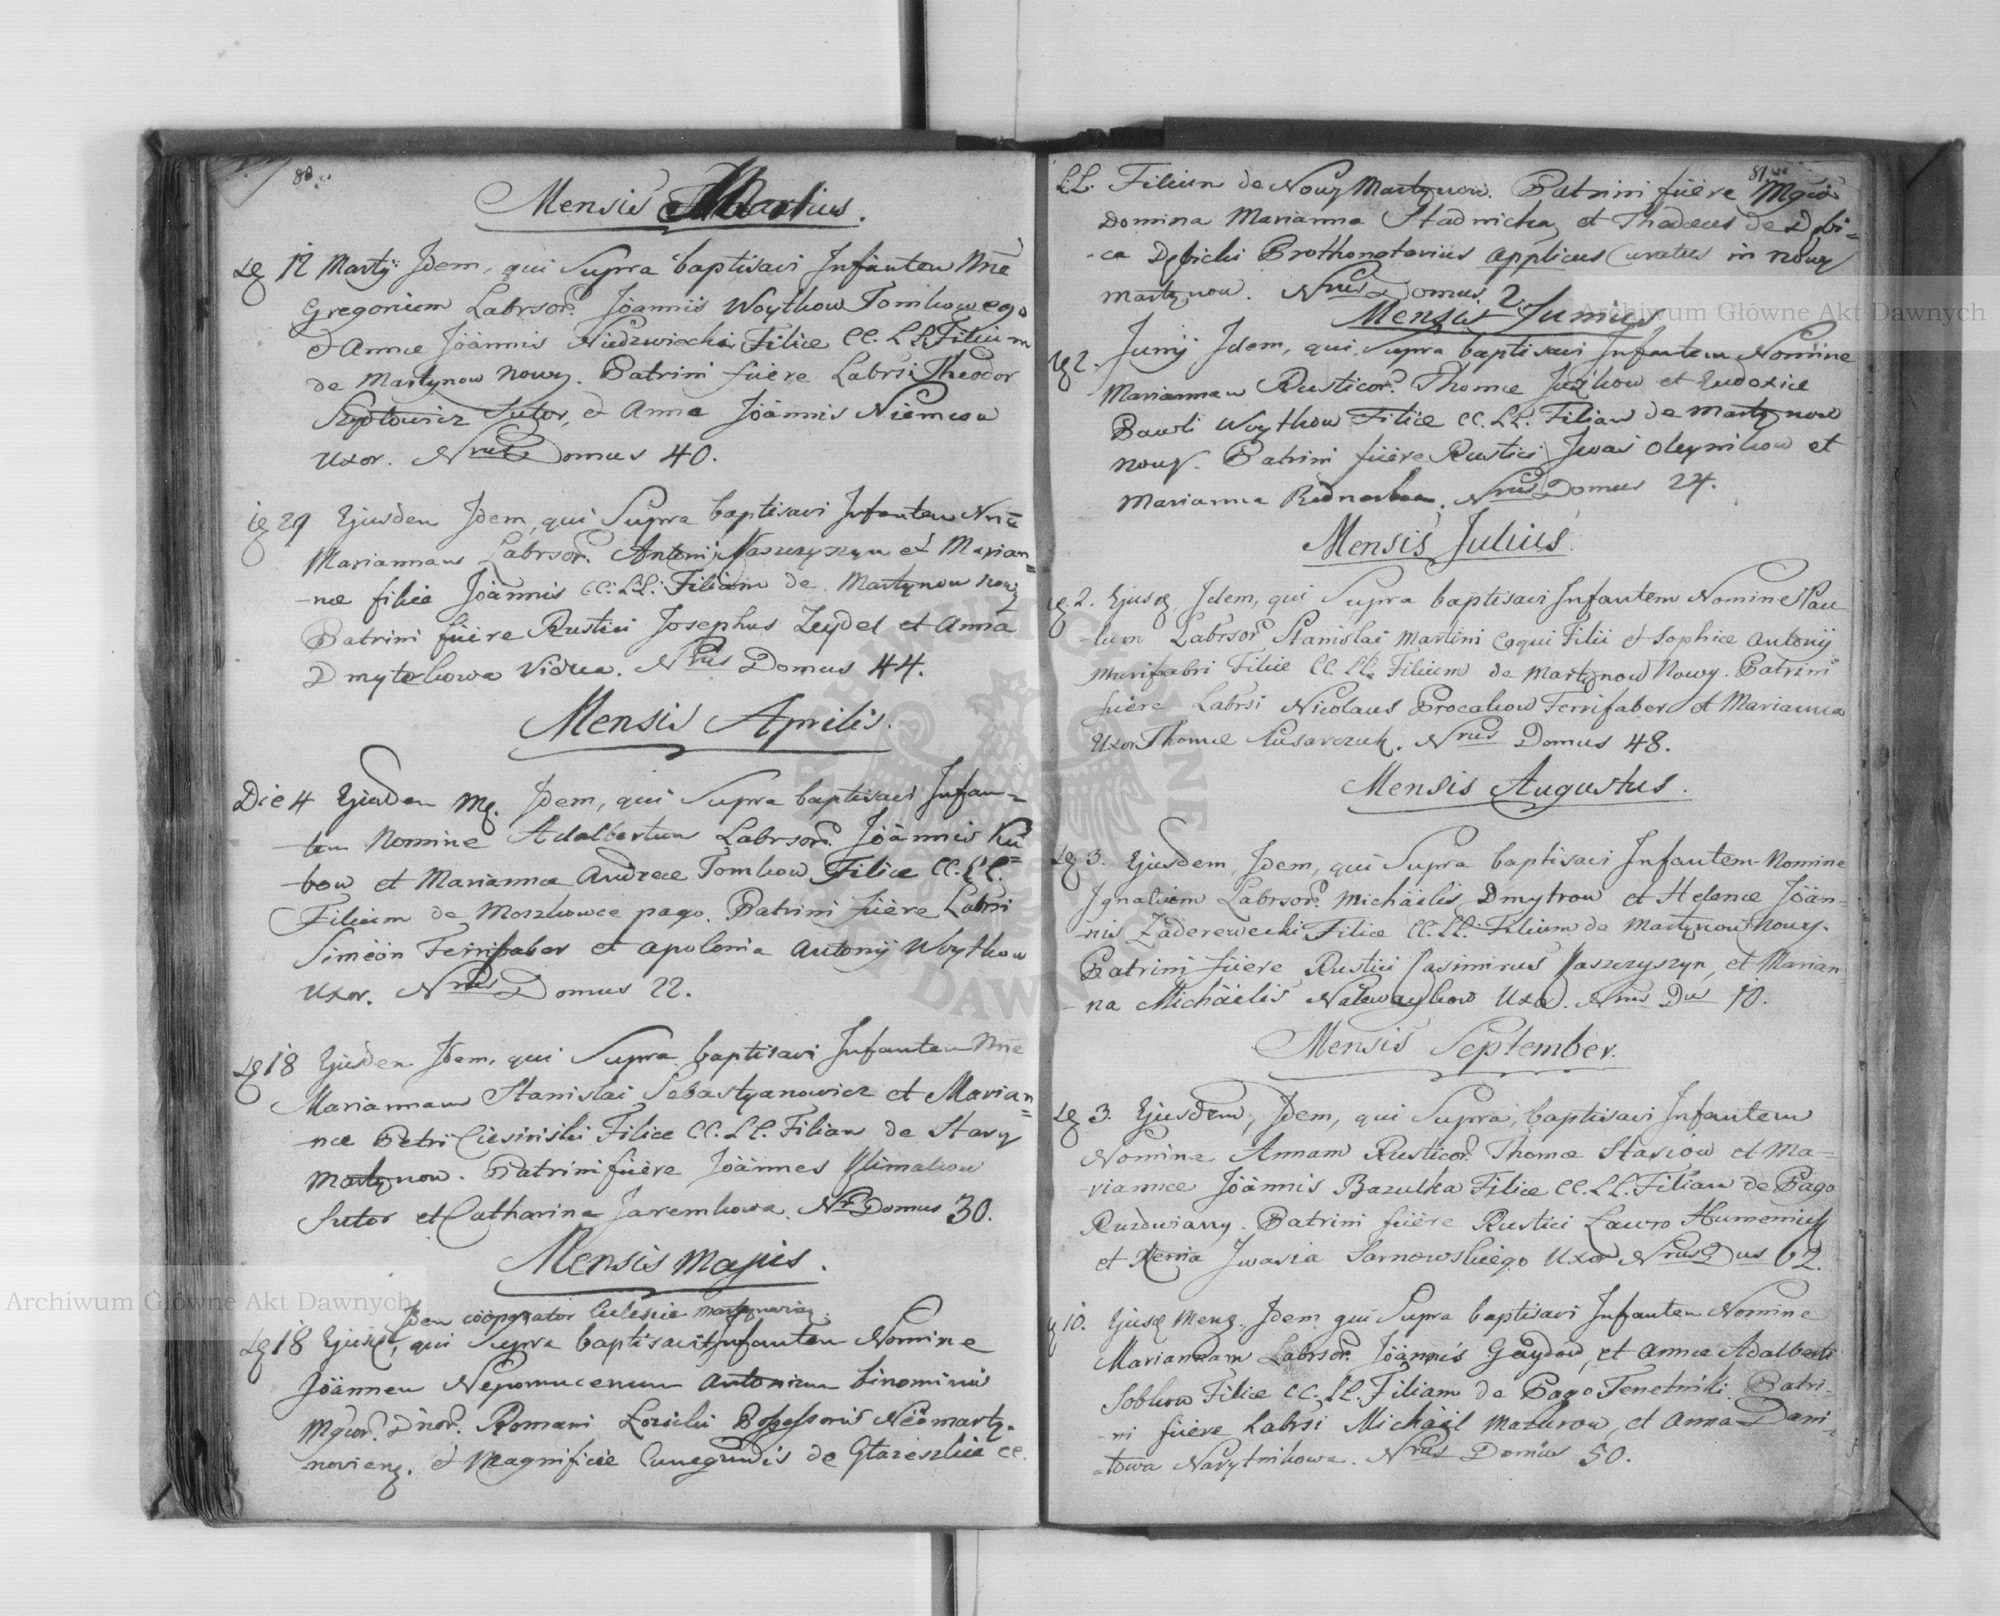 80
Mensis Martius.
12 Martij Idem, qui Supra baptisavi Infantem Nne
Gregorium Labrsor. Joannis Woytkow Tomkowego
et Annæ Joannis Filiæ CC. LL. Filium
de Martynow Nowy. Patrini fuere Labrsi Theodor
Szydlowicz Sutor, et Anna Joannis Niemcow
Uxor. Nrus Domus 40.
29 Ejusdem Idem, qui Supra baptisavi Infantem Nne
Mariannam Labrsor. Antonij Paszczyszyn et Marian=
-næ filiæ Joannis CC: LL: Filiam de Martynow Nowy
Patrini fuere Rustici Josephus Zeydel et Anna
Dmyterkowa Vidua. Nrus Domus 44.
Mensis Aprilis.
Die 4 Ejusdem Idem, qui Supra baptisavi Infan=
-tem Nomine Adalbertum Labrsor. Joannis Ku=
-bow et Mariannæ Andreæ Tomkow Filiæ CC. LL.
Filium de Moszkowce pago. Patrini fuere Labrsi
Simeon Ferrifaber et Apolonia Antonij Woytkow
Uxor. Nrus Domus 22.
18 Ejusdem Idem, qui Supra baptisavi Infantem Nne
Mariannam Stanislai Sebastyanowicz et Marian=
næ Petri Ciesinski Filiæ CC. LL. Filiam de Stary
Martynow. Patrini fuere Joannes Klimakow
Sutor et Catharina Jaremkowa. Nr Domus 30.
Mensis Majus.
Idem cooperator Eclesiæ
18 qui Supra baptisavi Infantem Nomine
Joannem Nepomucenum Antonium binominis
Mgcor. Dnor. Romani Possessoris Neomarty-
noviens. et Magnificæ Cunegundis de CC.
81
LL. Filium de Nowy Martynow. Patrini fuere Mgca
Domina Marianna Stadnicka, et Thadeus de Dębi=
-ca Dębicki Prothonotarius Applicus Curatus in Nowy
Martynow. Nrus Domus 2.
Mensis Junius
2. Junij Idem, qui Supra baptisavi Infantem Nomine
Mariannam Rusticor. Thomæ Juzikow et Eudoxiæ
Pawli Woytkow Filiæ CC. LL. Filiam de Martynow
Nowy. Patrini fuere Rustici Iwas Oleynikow et
Marianna Nrus Domus 24.
Mensis Julius.
2. Idem, qui Supra baptisavi Infantem Nomine Pau
-lum Labrsor. Stanislai Martini Coqui Filii et Sophiæ Antonij
Murifabri Filiæ CC. LL. Filium de Martynow Nowy. Patrini
fuere Labrsi Nicolaus Procakow Ferrifaber et Marianna
Uxor Thomæ Slusarczuk. Nrus Domus 48.
Mensis Augustus.
3. Ejusdem Idem, qui Supra baptisavi Infantem Nomine
Ignatium Labrsor. Michaelis Dmytrow et Helenæ Joan=
-nis Zaderewecki Filiæ CC. LL. Filium de Martynow Nowy.
Patrini fuere Rustici Casimirus Paszczyszyn, et Marian
-na Michaelis Nalewaykow Uxor. Nrus Dus 10.
Mensis September.
3. Ejusdem, Idem, qui Supra, baptisavi Infantem
Nomine Annam Rusticor. Thomæ Stasiow et Ma=
-riannæ Joannis Bazulka Filiæ CC. LL. Filiam de Pago
Ruzdwiany. Patrini fuere Rustici Lawro Humeniuk
et Xenia Iwasia Sarnowskiego Uxor Nrus Dus 62.
10. Idem qui Supra baptisavi Infantem Nomine
Mariannam Labrsor. Joannis Gaydow, et Annæ Adalberti
Sobkow Filiæ CC. LL. Filiam de Pago Tenetniki. Patri-
-ni fuere Labrsi Michael Mazurow, et Anna Dani=
=lowa Narytnikowa. Nrus Domus 50.
Archiwum Główne Akt Dawnych
Archiwum Główne Akt Dawnych
ARCHIWUM GŁÓWNE AKT DAWNYCH